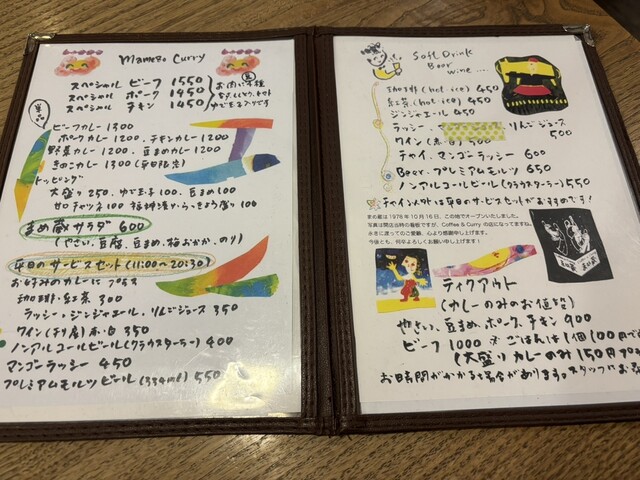 mamezo Curry
スペシャル ビーフ 1550
スペシャル ポーク 1450
スペシャル チキン 1450
単品
ビーフカレー 1300
ポークカレー 1200、チキンカレー 1200
野菜カレー 1200、豆まめカレー 1200
きのこカレー 1300 (平日限定)
トッピング
大盛り 250、ゆで玉子 100、豆まめ 100
甘口チャツネ 100 福神漬・らっきょう盛り 100
まめ蔵サラダ 600
(やさい、豆腐、豆まめ、梅おかか、のり)
平日のサービスセット (11:00〜20:30)
お好みのカレーに プラス
珈琲・紅茶 300
ラッシー・ジンジャエール・りんごジュース 350
ワイン (デリ居) 赤・白 350
ノンアルコールビール (クラウスターラー) 400
マンゴラッシー 450
プレミアムモルツビール (334ml) 550
Soft Drink
Beer
wine ....
珈琲 (hot・ice) 450
紅茶 (hot・ice) 450
ジンジャエール 450
ラッシー
りんごジュース
500
ワイン (赤・白) 500
チャイ、マンゴラッシー 600
Beer・プレミアムモルツ 650
ノンアルコールビール (クラウスターラー) 550
チャイン以外は平日のサービスセットがおすすめです!
まめ蔵は1978年10月16日、この地でオープンいたしました。
写真は開店当時の看板ですが、Coffee & Curry の店になってますね。
永きに渡ってのご愛顧、心より感謝申し上げます!
今後とも、何卒よろしくお願い申し上げます!
テイクアウト
(カレーのみのお値段)
やさい、豆まめ、ポーク、チキン 900
ビーフ 1000 ※ごはんは1個100円で
(大盛りカレーのみ 150円プラ
お時間がかかる場合があります。スタッフにお尋